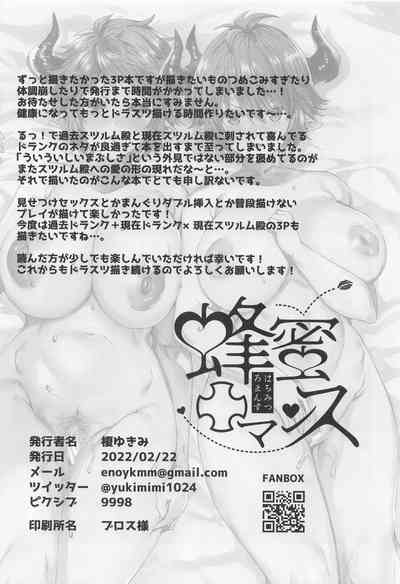 ずっと描きたかった3P本ですが描きたいものつめこみすぎたり
体調崩したりで発行まで時間がかかってしまいました…!
お待たせした方がいたら本当にすみません。
健康になってもっとドラスツ描ける時間作りたいです〜…。
るっ!で過去スツルム殿と現在スツルム殿に刺されて喜んでる
ドランクのネタが良過ぎて本を出すまで至ってしまいました。
「ういういしいまぶしさ」という外見ではない部分を褒めてるのが
またスツルム殿への愛の形の現れだな〜と…。
それで描いたのがこんな本でとても申し訳ないです。
見せつけセックスとかまんぐりダブル挿入とか普段描けない
プレイが描けて楽しかったです!
今度は過去ドランク+現在ドランク×現在スツルム殿の3Pも
描きたいですね…。
読んだ方が少しでも楽しんでいただければ幸いです!
これからもドラスツ描き続けるのでよろしくお願いします!
蜂蜜
ロマンス
はちみつ
ろまんす
発行者名 榎ゆきみ
発行日 2022/02/22
メール enoykmm@gmail.com
ツイッター @yukimimi1024
ピクシブ 9998
印刷所名 ブロス様
FANBOX